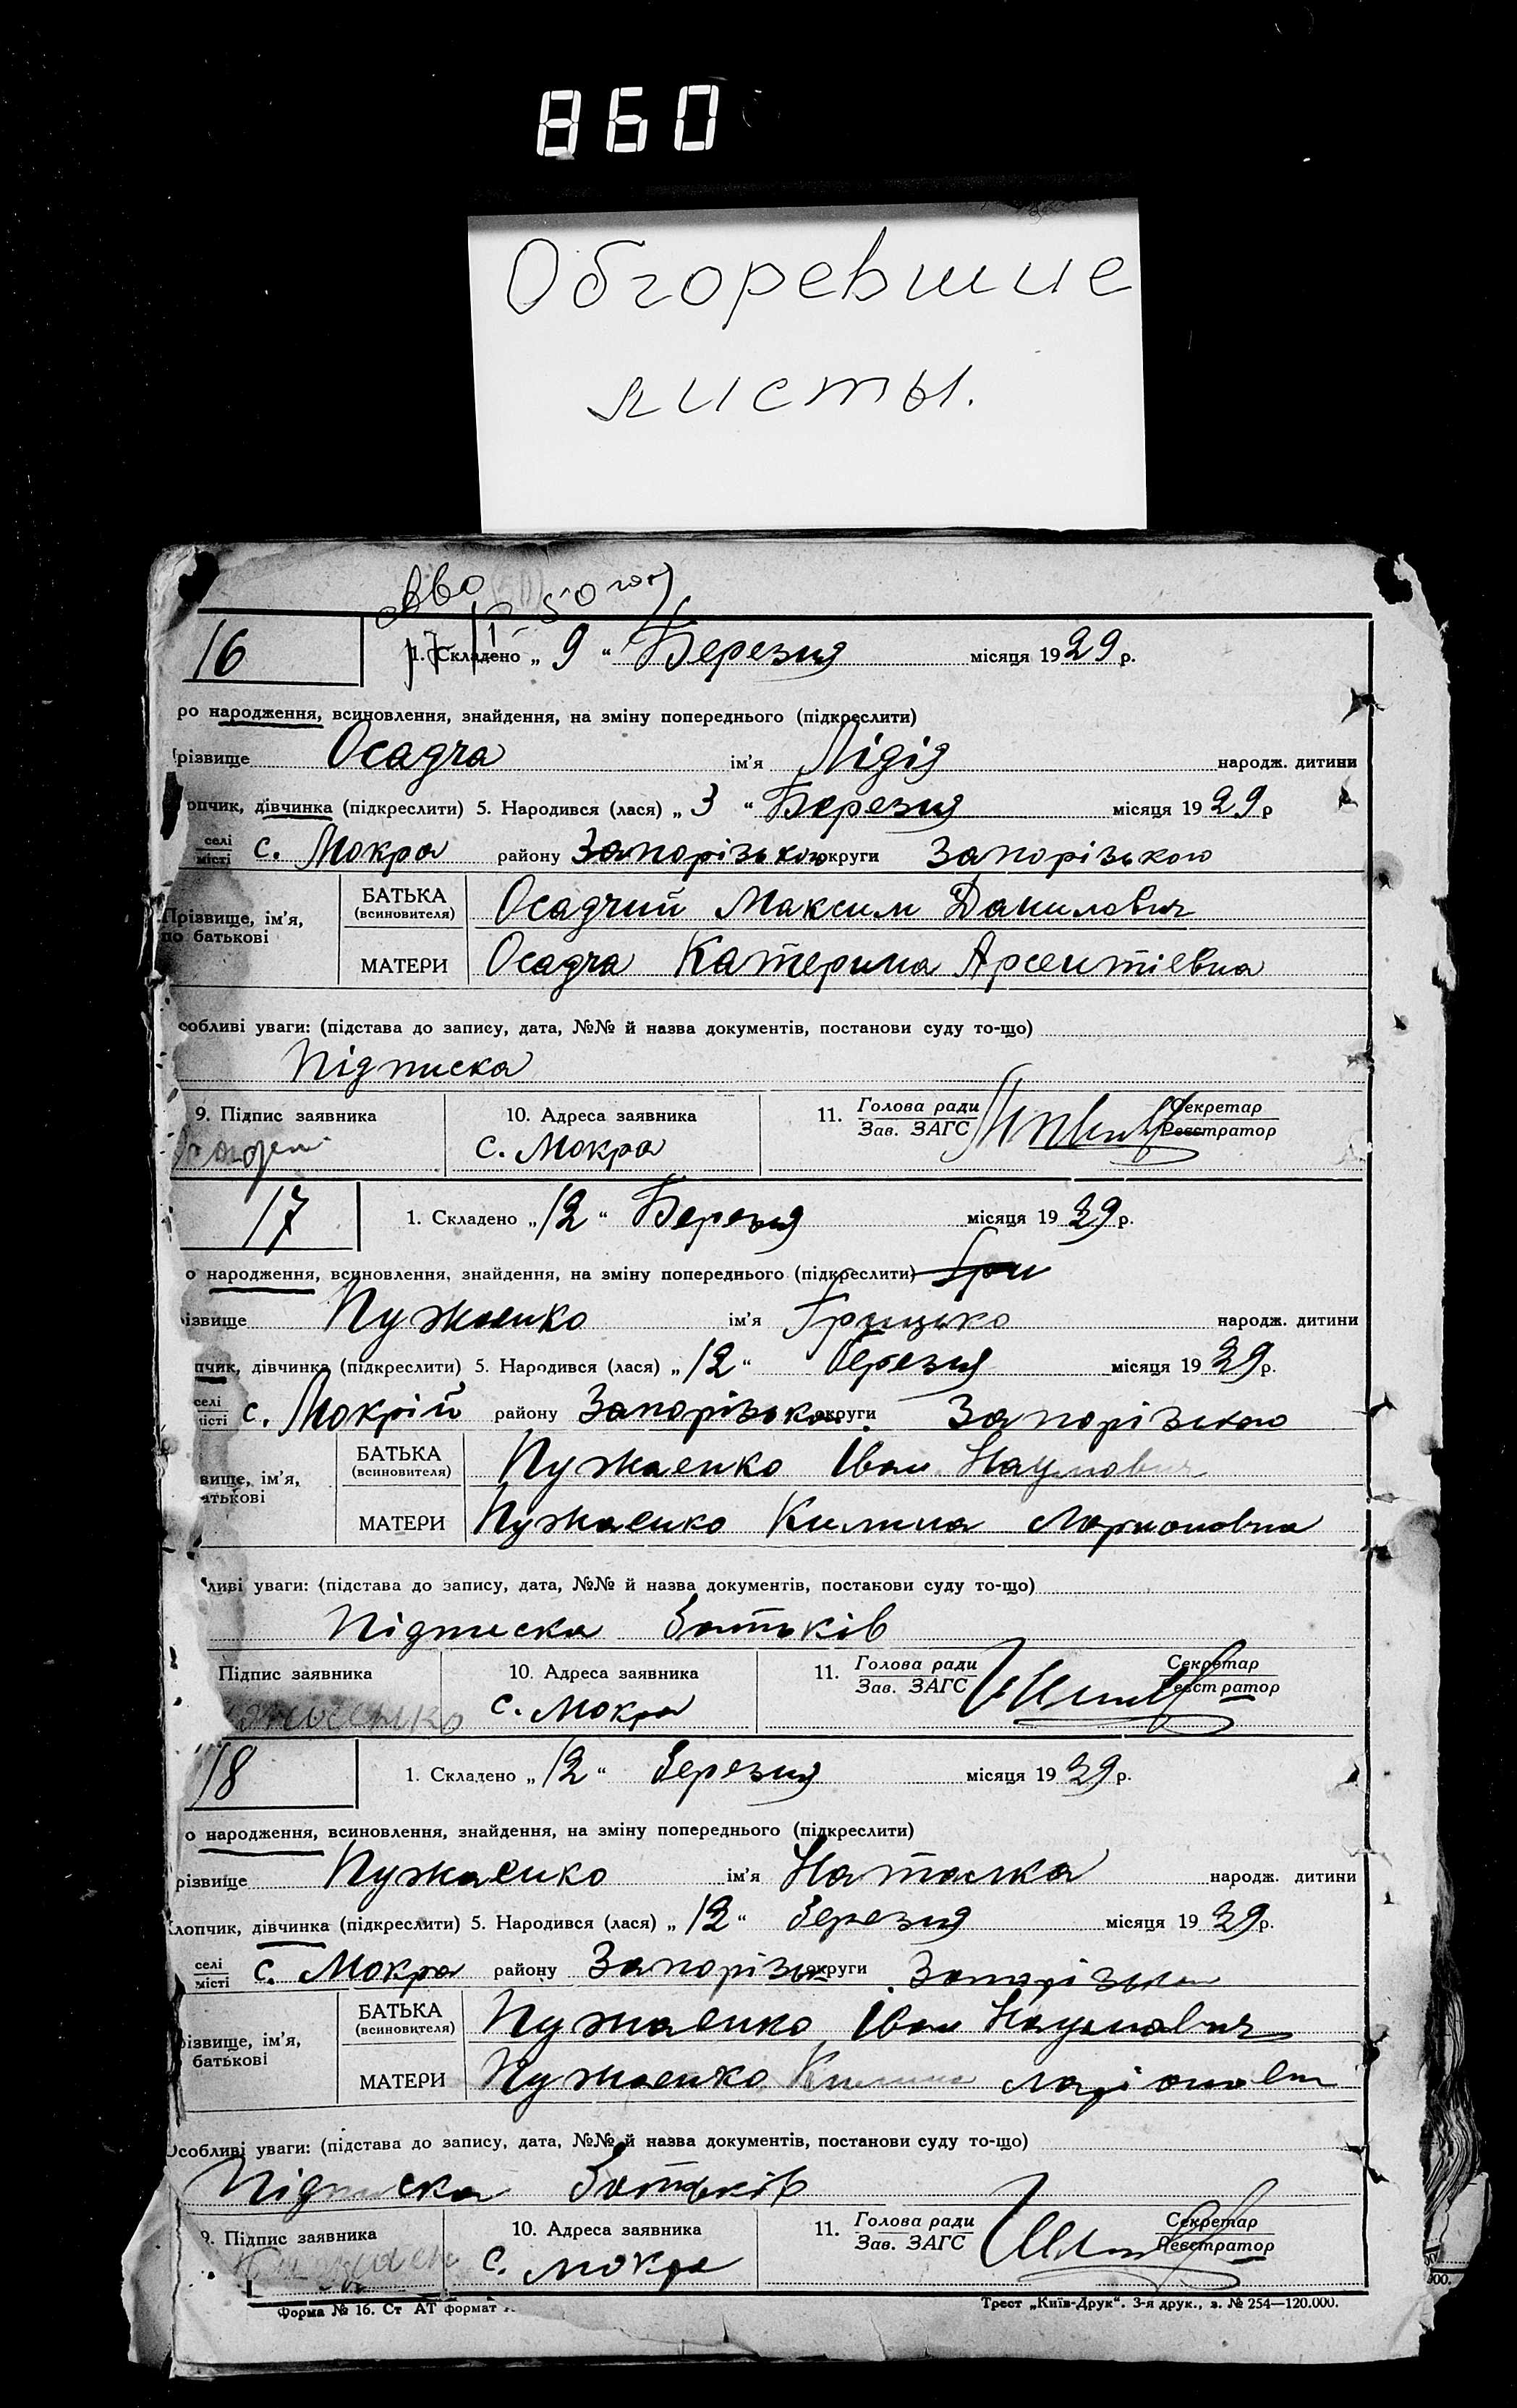 860
Обгоревшие
листы.
16
1. Складено „ 9 “ Березня місяця 1929 р.
ро народження, всиновлення, знайдення, на зміну попереднього (підкреслити)
різвище Осадча ім’я Лідія народж. дитини
опчик, дівчинка (підкреслити) 5. Народився (лася) „ 3 “ Березня місяця 1929 р
селі
місті с. Мокра району Запорізького округи Запорізькою
Прізвище, ім’я,
по батькові
БАТЬКА
(всиновителя) Осадчий Максим Данилович
МАТЕРИ Осадча Катерина Арсентіевна
собливі уваги: (підстава до запису, дата, №№ й назва документів, постанови суду то-що)
Підписка
9. Підпис заявника 10. Адреса заявника 11. Голова ради Секретар
Зав. ЗАГС Реєстратор
с. Мокра
17
1. Складено „ 12 “ Березня місяця 1929 р.
о народження, всиновлення, знайдення, на зміну попереднього (підкреслити) Гри
різвище Пужаенко ім’я Грицько народж. дитини
пчик, дівчинка (підкреслити) 5. Народився (лася) „ 12 “ березня місяця 1929 р.
селі
місті с. Мокрій району Запорізько округи Запорізькою
вище, ім’я,
атькові
БАТЬКА
(всиновителя) Пужаенко Іван Наумович
МАТЕРИ Пужаенко Килина Ларионовна
ливі уваги: (підстава до запису, дата, №№ й назва документів, постанови суду то-що)
Підписка батьків
Підпис заявника 10. Адреса заявника 11. Голова ради Секретар
Зав. ЗАГС Реєстратор
с. Мокра
18
1. Складено „ 12 “ березня місяця 1929 р.
о народження, всиновлення, знайдення, на зміну попереднього (підкреслити)
різвище Пужаенко ім’я Наталка народж. дитини
Хлопчик, дівчинка (підкреслити) 5. Народився (лася) „ 12 “ березня місяця 1929 р.
селі
місті с. Мокра району Запорізьк округи Запорізьк
різвище, ім’я,
батькові
БАТЬКА
(всиновителя) Пужаенко Іван Наумович
МАТЕРИ Пужаенко Килина
Особливі уваги: (підстава до запису, дата, №№ й назва документів, постанови суду то-що)
Підписка батьків
9. Підпис заявника 10. Адреса заявника 11. Голова ради Секретар
Зав. ЗАГС Реєстратор
с. Мокра
Форма № 16. Ст АТ формат Трест „Київ-Друк“. 3-я друк., з. № 254—120.000.